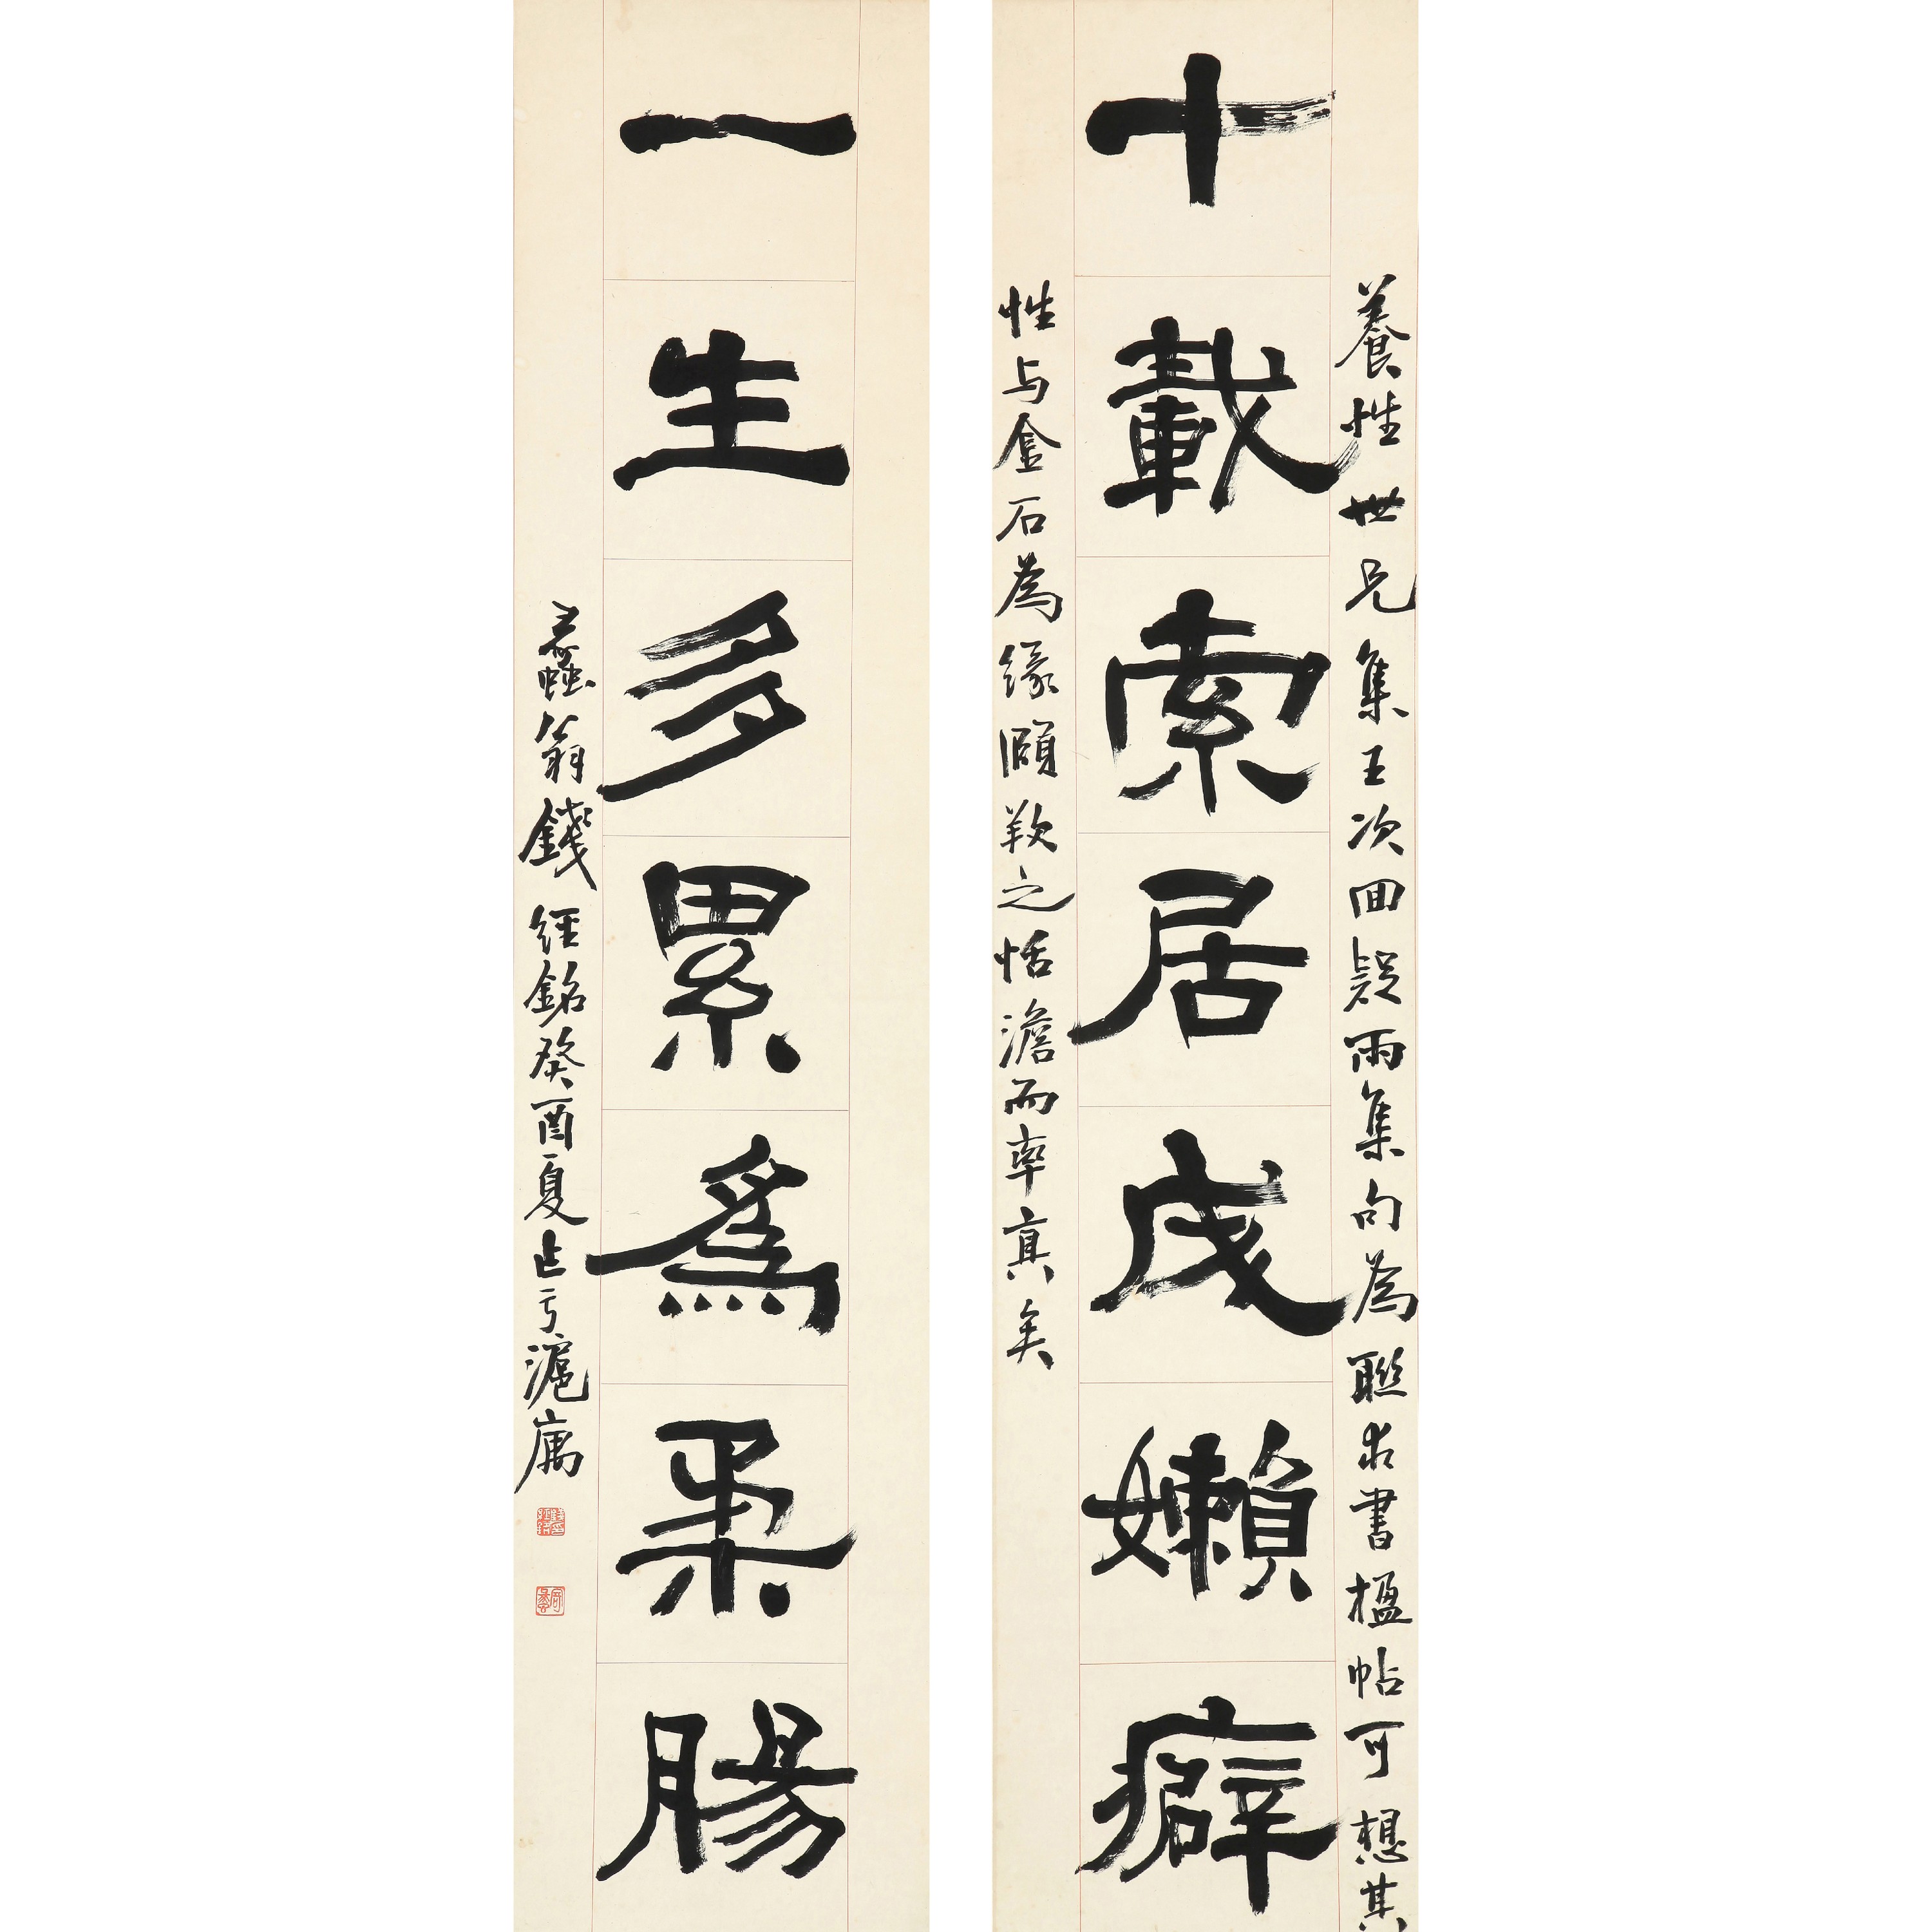 養性世兄集王次回疑雨集句為聯求書楹帖可想其
十載索居成嬾癖
性与金石為緣之恬澹而率真矣
一生多累為柔腸
翁錢經銘癸酉夏乍亏滬庽